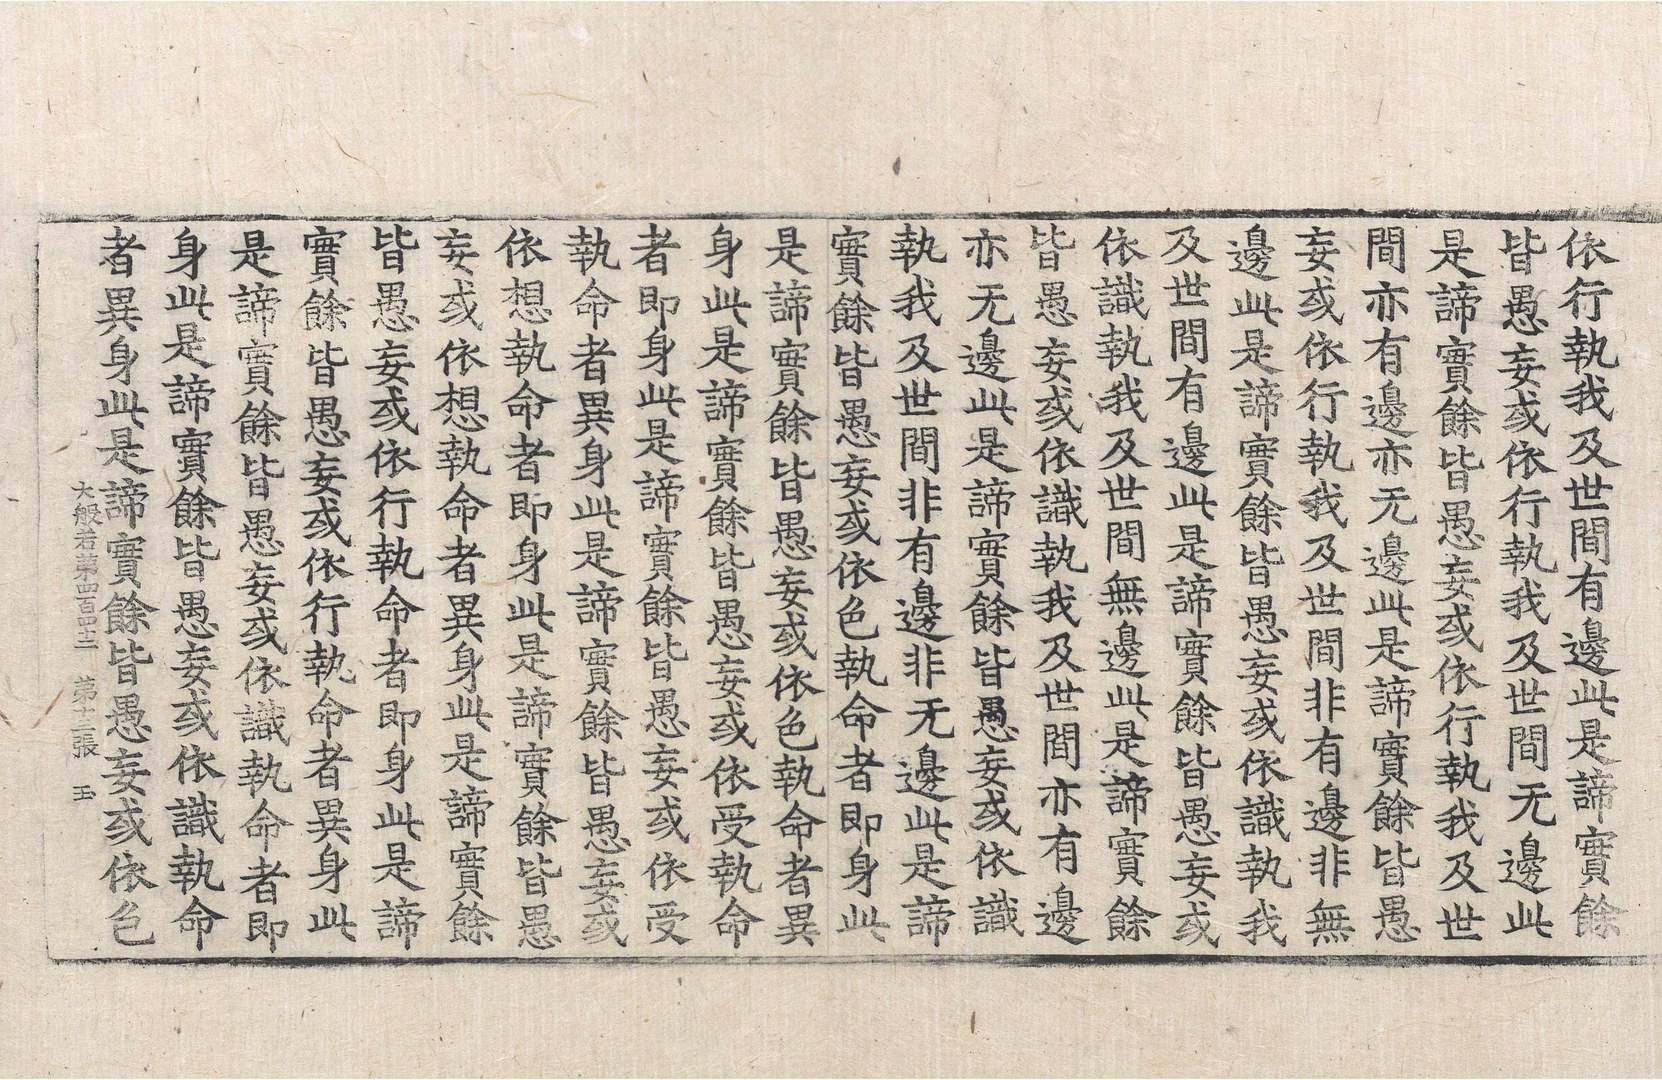 依行執我及世間有邊此是諦實餘
皆愚妄或依行執我及世間无邊此
是諦實餘皆愚妄或依行執我及世
間亦有邊亦无邊此是諦實餘皆愚
妄或依行執我及世間非有邊非無
邊此是諦實餘皆愚妄或依識執我
及世間有邊此是諦實餘皆愚妄或
依識執我及世間無邊此是諦實餘
皆愚妄或依識執我及世間亦有邊
亦无邊此是諦實餘皆愚妄或依識
執我及世間非有邊非无邊此是諦
實餘皆愚妄或依色執命者即身此
是諦實餘皆愚妄或依色執命者異
身此是諦實餘皆愚妄或依受執命
者即身此是諦實餘皆愚妄或依受
執命者異身此是諦實餘皆愚妄或
依想執命者即身此是諦實餘皆愚
妄或依想執命者異身此是諦實餘
皆愚妄或依行執命者即身此是諦
實餘皆愚妄或依行執命者異身此
是諦實餘皆愚妄或依識執命者即
身此是諦實餘皆愚妄或依識執命
者異身此是諦實餘皆愚妄或依色
大般若第四百四十二 第十三張 玉